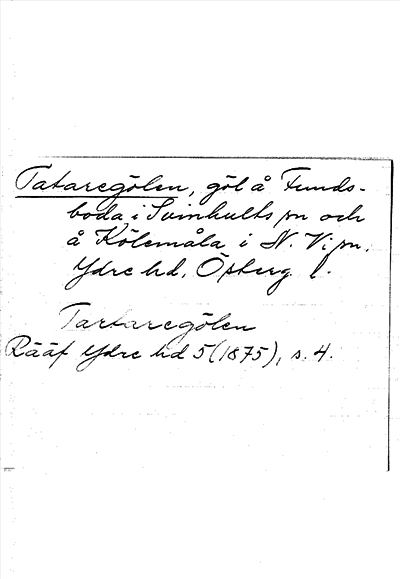 Tataregölen, göl å Funds-
boda i Svinhults sn och
å Kölemåla i N. Vi sn.
Ydre hd, Östergl.
Tartaregölen
Rääf Ydre hd 5 (1875), s. 4.